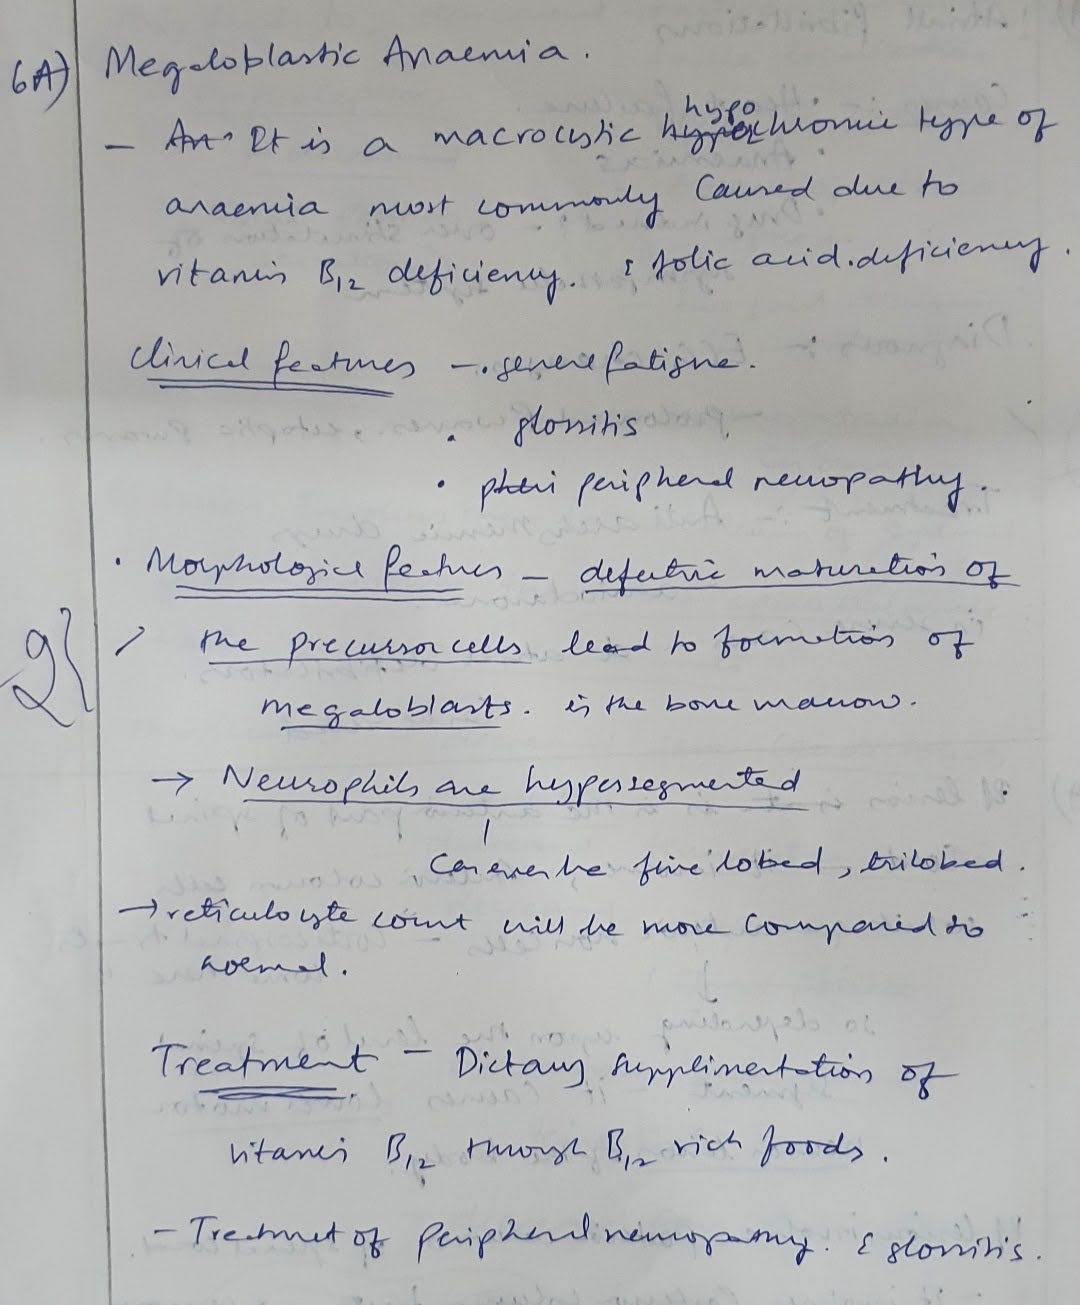 6A) Megaloblastic Anaemia.
- It is a macrocystic hypochromic type of
anaemia most commonly caused due to
vitamin B12 deficiency. & folic acid. deficiency.
Clinical features - . severe fatigue.
. glossitis
• peripheral neuropathy.
• Morphological features - defective maturation of
the precursor cells lead to formation of
megaloblasts. in the bone marrow.
→ Neurophils are hypersegmented
Can even be five lobed, trilobed.
→ reticulocyte count will be more compared to
normal.
Treatment - Dietary supplimentation of
vitamin B12 through B12 rich foods.
- Treatment of peripheral neuropathy. & glossitis.